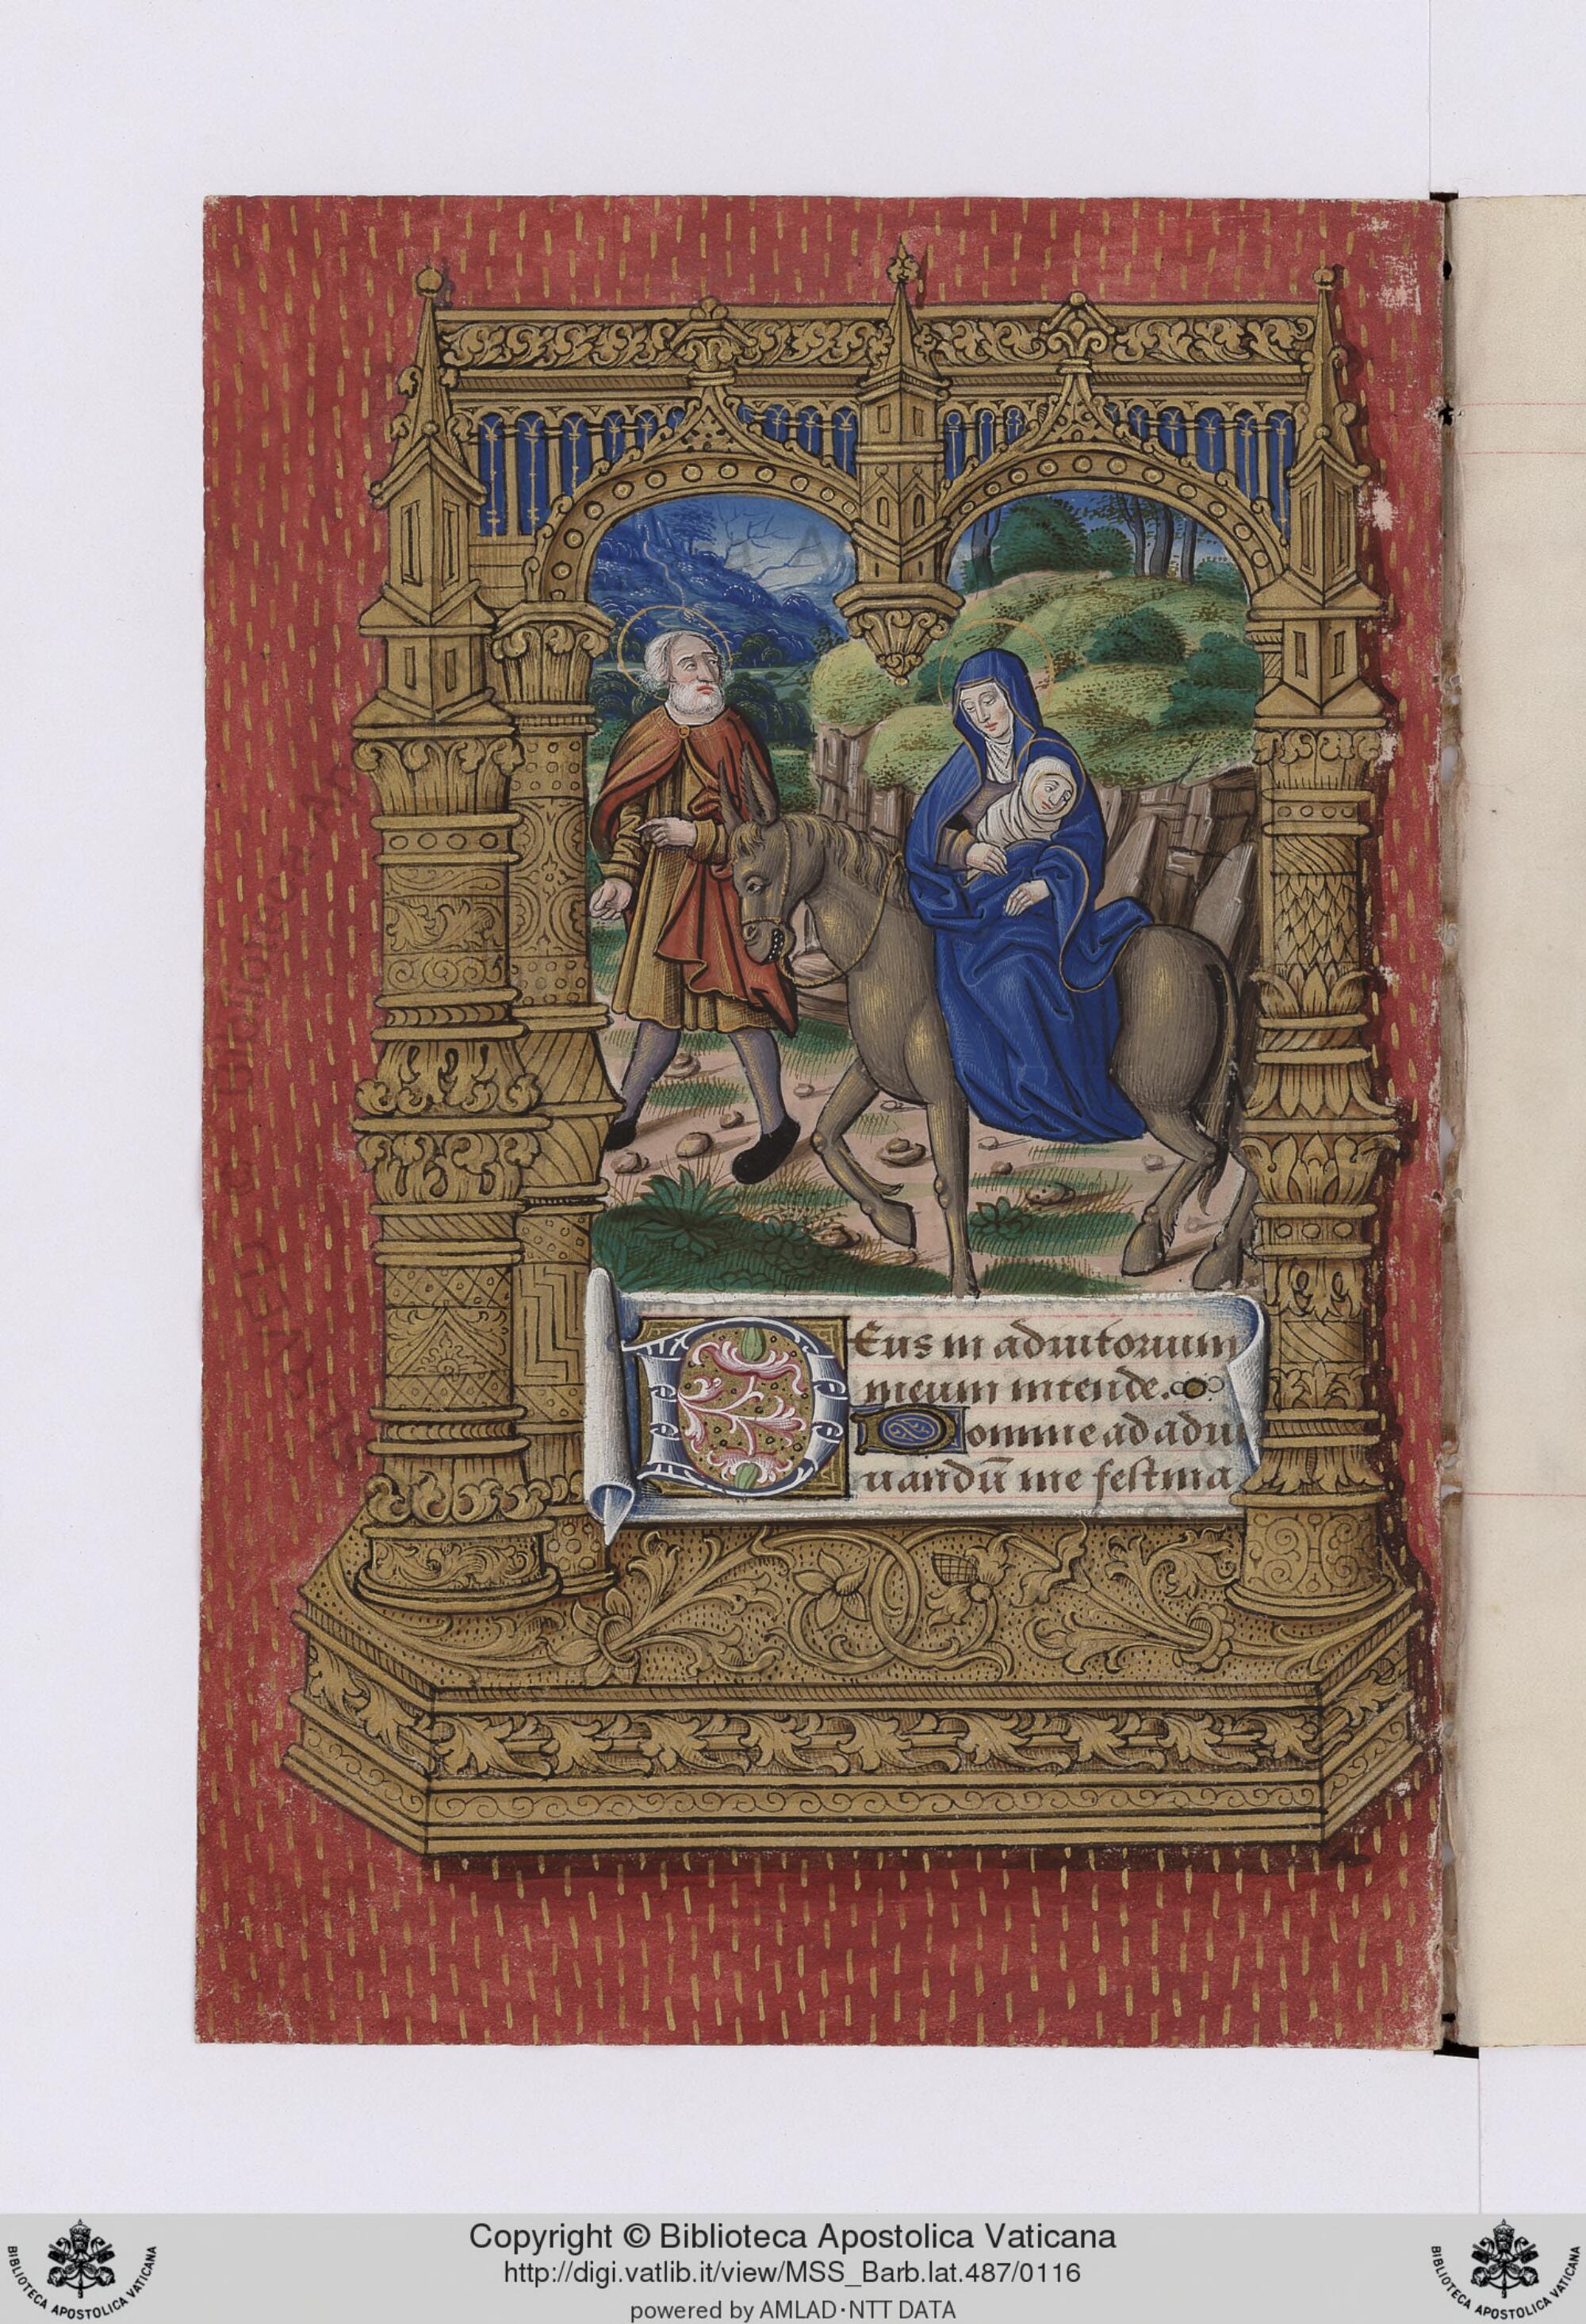 DEus in adiutorium
meum intende.
Domine ad adiu
uandū me festina
Copyright © Biblioteca Apostolica Vaticana
http://digi.vatlib.it/view/MSS_Barb.lat.487/0116
powered by AMLAD·NTT DATA
BIBLIOTECA APOSTOLICA VATICANA
BIBLIOTECA APOSTOLICA VATICANA